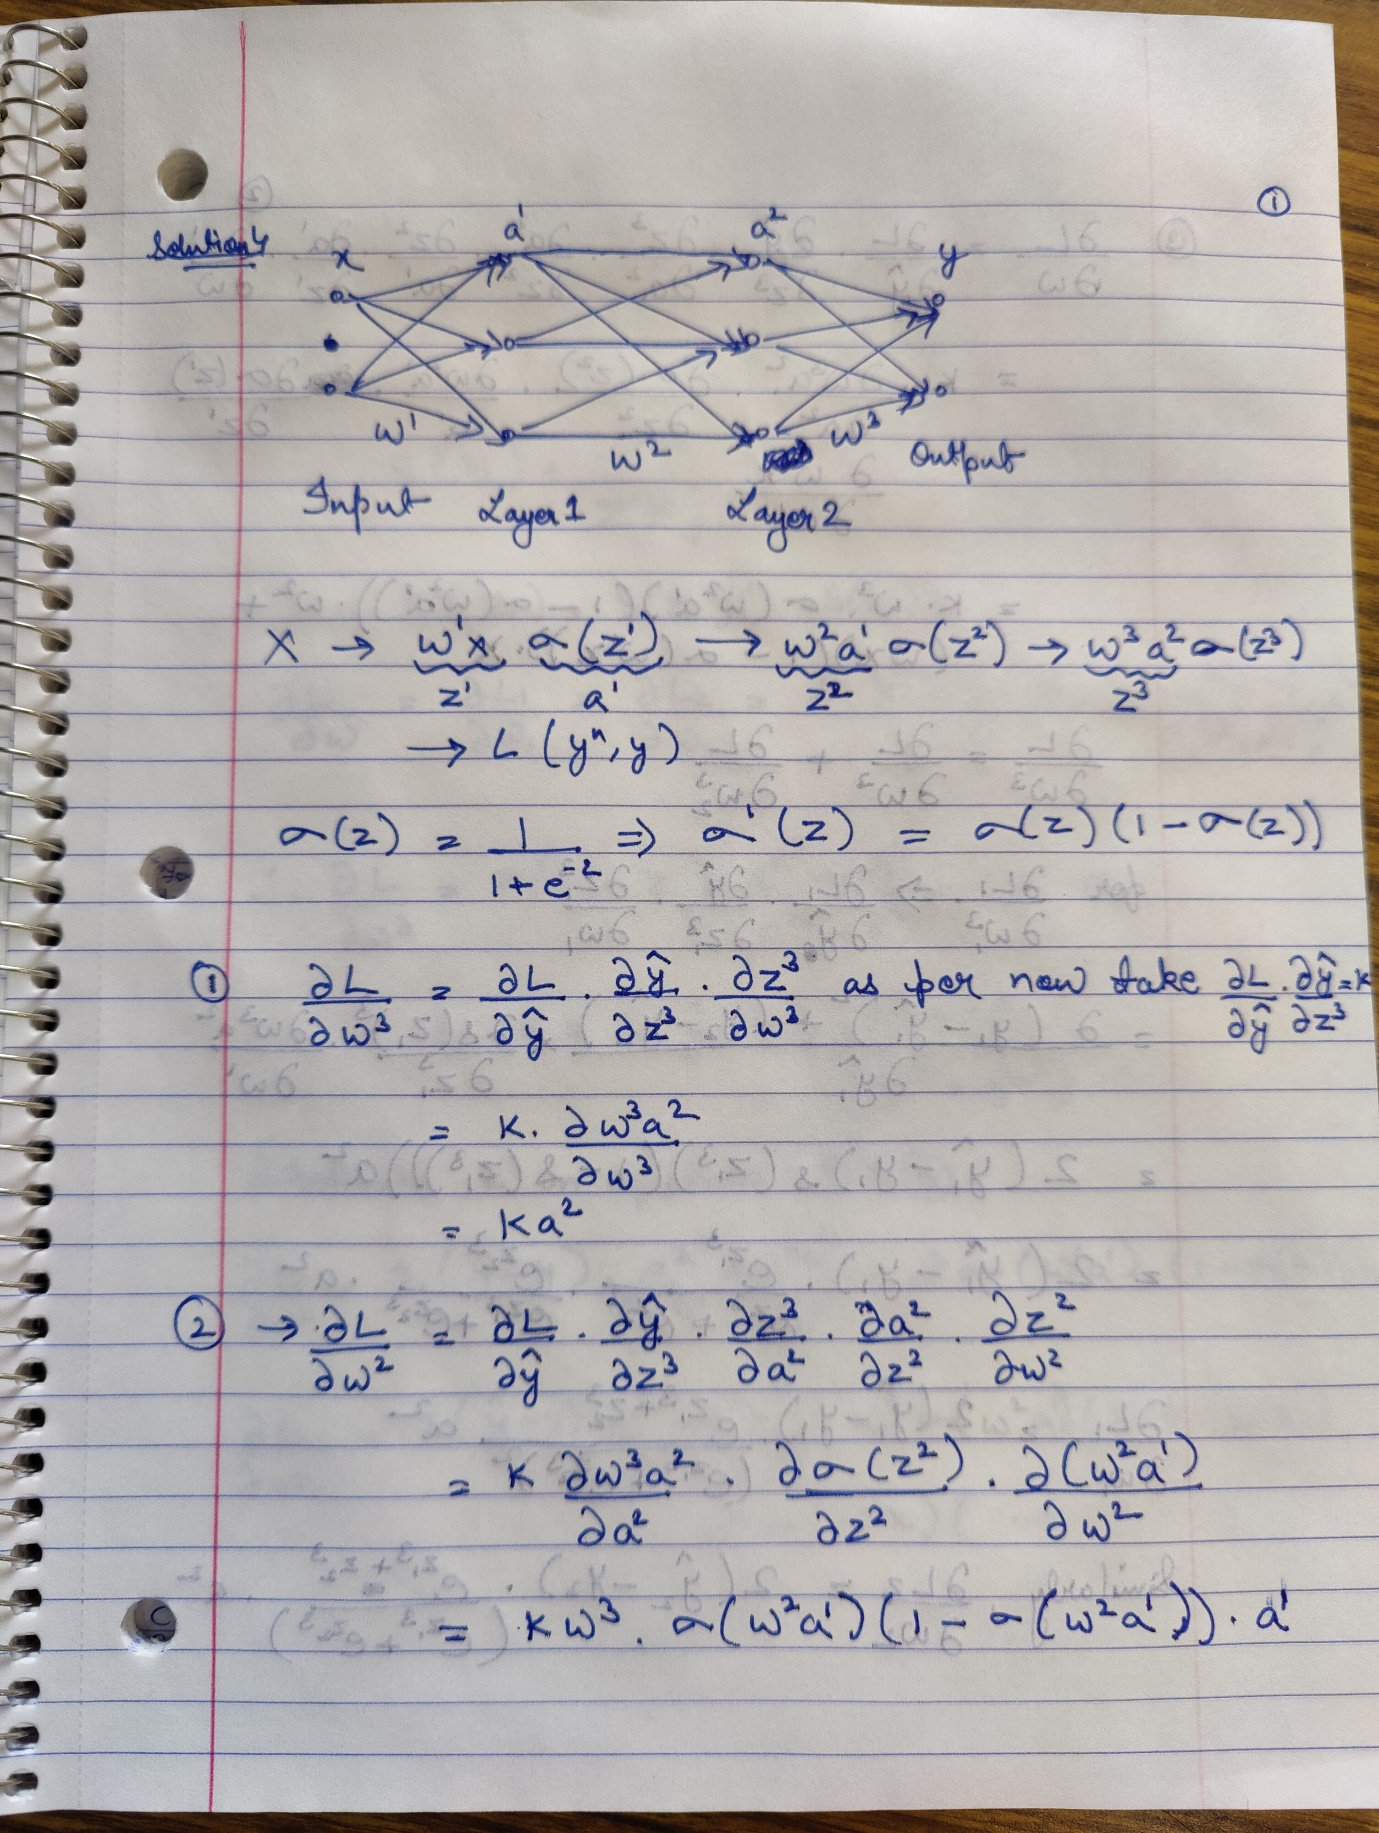 ①
Solution 4
x a¹ a² y
w¹ w² w³
Input Layer 1 Layer 2 Output
X → w¹x σ(z¹) → w²a¹ σ(z²) → w³a² σ(z³)
z¹ a¹ z² z³
→ L (y^, y)
σ(z) = 1/(1+e^-z) ⇒ σ'(z) = σ(z)(1-σ(z))
① ∂L/∂w³ = ∂L/∂ŷ . ∂ŷ/∂z³ . ∂z³/∂w³ as per now take ∂L/∂ŷ . ∂ŷ/∂z³ = K
= K. ∂w³a²/∂w³
= Ka²
② → ∂L/∂w² = ∂L/∂ŷ . ∂ŷ/∂z³ . ∂z³/∂a² . ∂a²/∂z² . ∂z²/∂w²
= K ∂w³a²/∂a² . ∂σ(z²)/∂z² . ∂(w²a¹)/∂w²
= Kw³. σ(w²a¹)(1-σ(w²a¹)). a¹